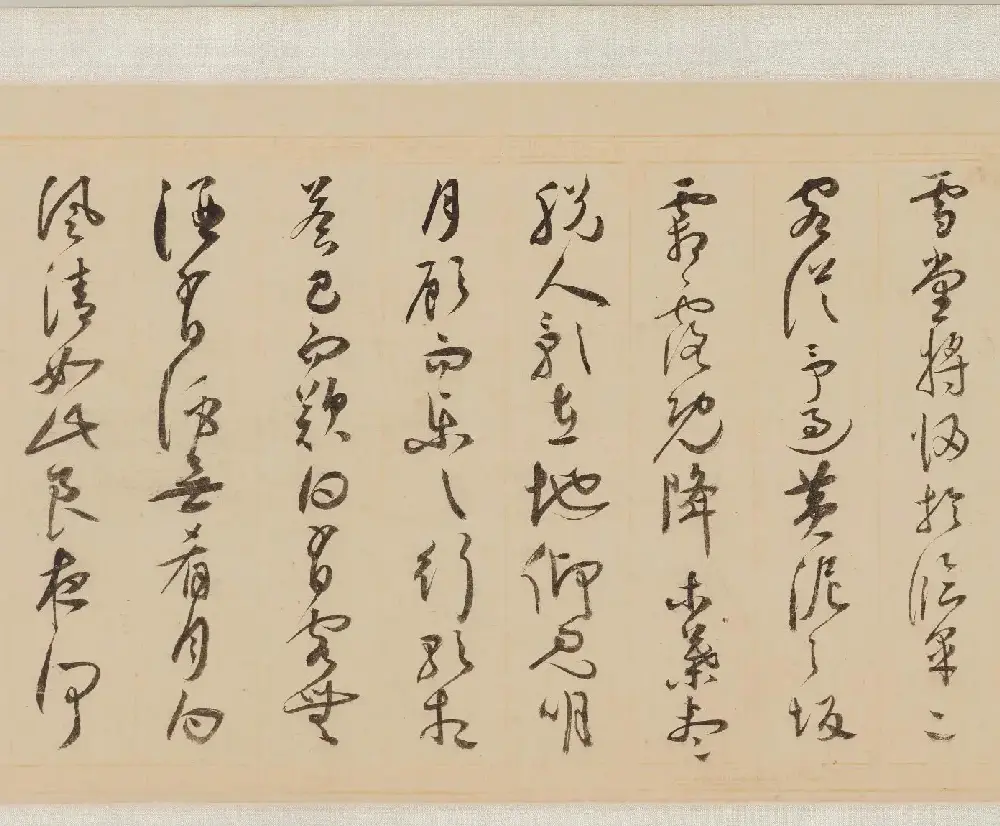 雪堂將歸於臨皋二
客從予過黃泥之坂
霜露既降木葉盡
脫人影在地仰見明
月顧而樂之行歌相
答已而歎曰有客無
酒有酒無肴月白
風清如此良夜何